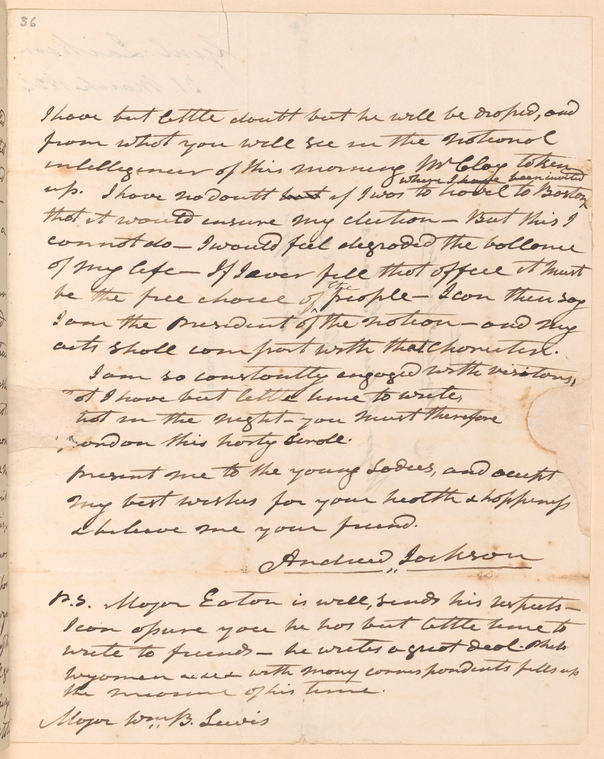 36
I have but little doubt but he will be droped, and
from what you will see in the national
intelligencer of this morning Mr Clay taken
up. I have no doubt but if I was to travel to Boston
where I have been invited
that it would ensure my election — But this I
cannot do — I would feel degraded the ballance
of my life — If I ever fill that office it must
be the free choice of the people — I can then say
I am the President of the nation — and my
acts shall comport with that Charecter.
I am so constantly engaged with visitors,
I have but little time to write,
but in the night — you must therefore
pardon this hasty scroll.
present me to the young Ladies, and accept
my best wishes for your health & happiness
& believe me your friend.
Andrew Jackson
P.S. Major Eaton is well, sends his respects —
I can assure you he has but little time to
write to friends — he writes a great deal.
with many correspondents fills up
the measure of his time.
Major Wm. B. Lewis